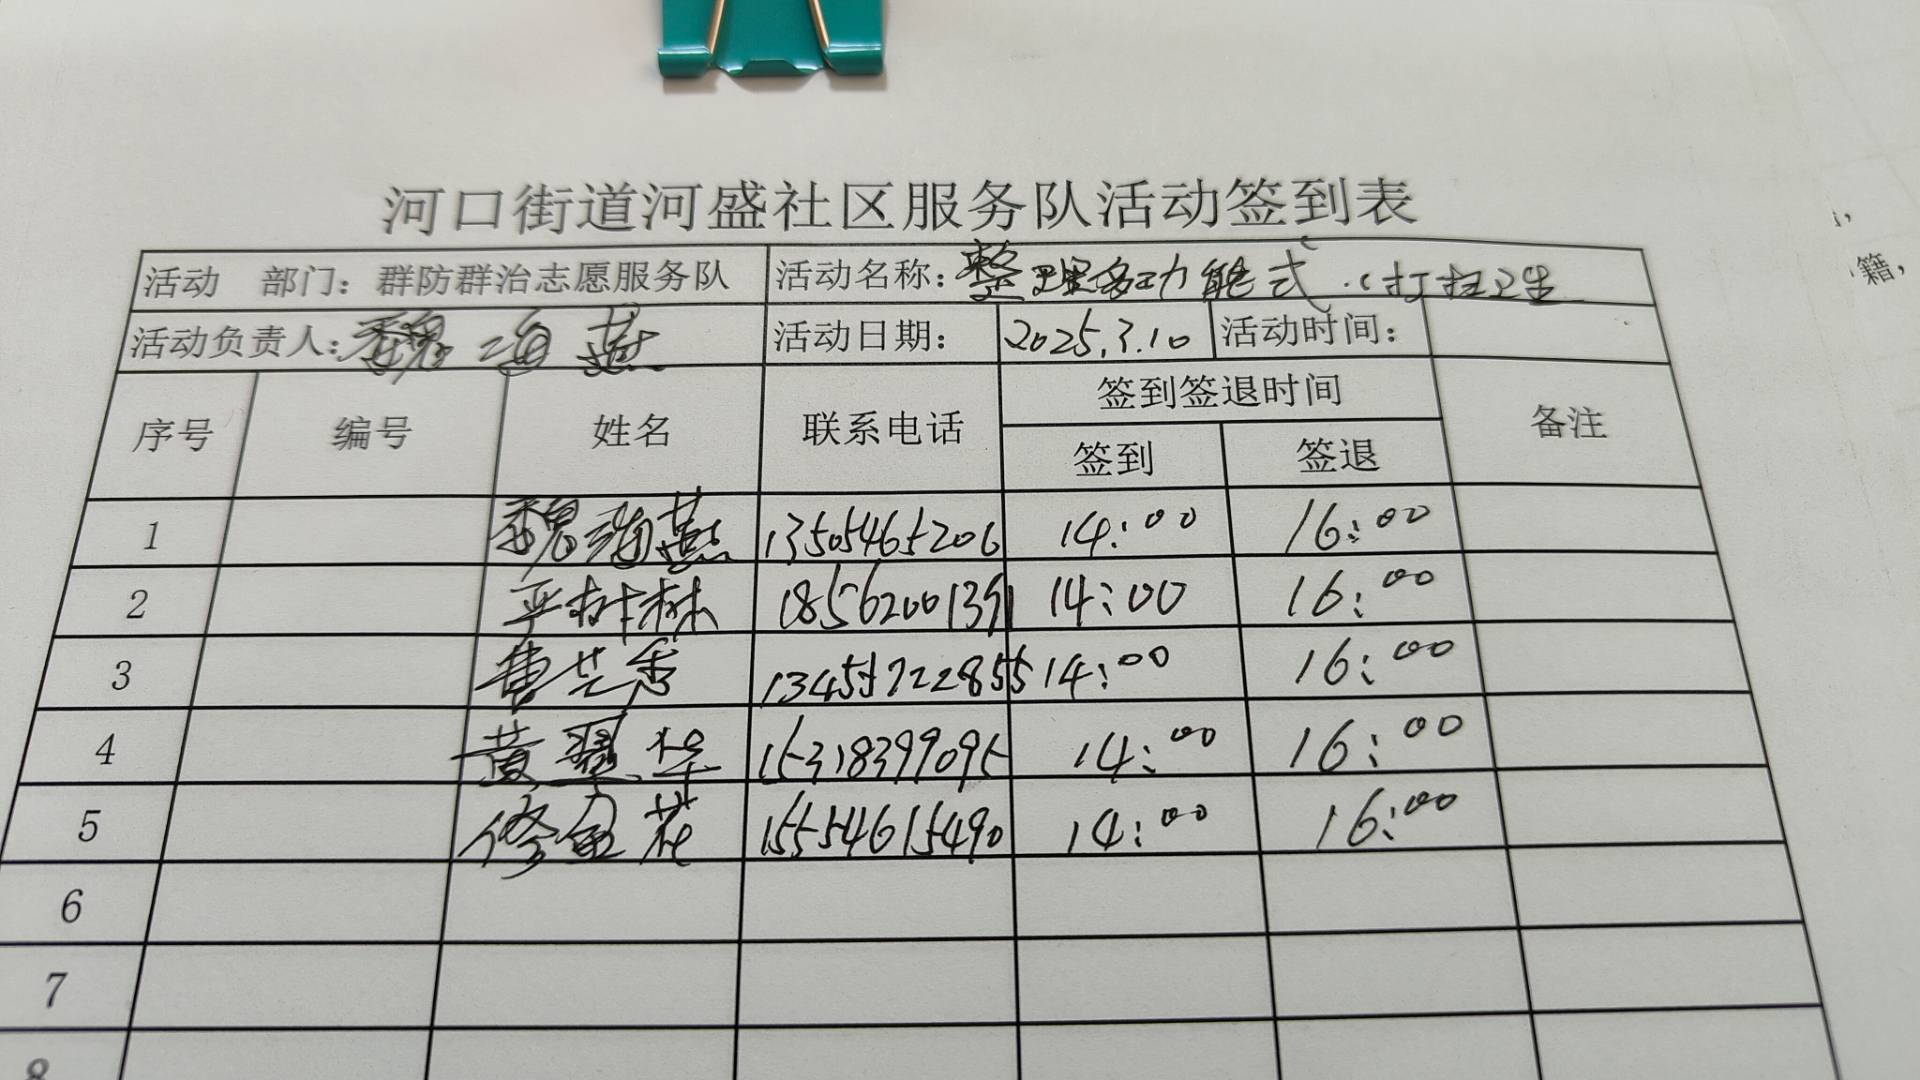 河口街道河盛社区服务队活动签到表
活动 部门：群防群治志愿服务队 活动名称：整理多功能式.（打扫卫生
活动负责人：魏海燕 活动日期： 2025.3.10 活动时间：
序号 编号 姓名 联系电话 签到签退时间 备注
签到 签退
1 魏海燕 13505465206 14:00 16:00
2 林 18562001391 14:00 16:00
3 曹芝香 14:00 16:00
4 黄翠华 15318399095 14:00 16:00
5 修鱼花 15554615490 14:00 16:00
6
7
8
籍，